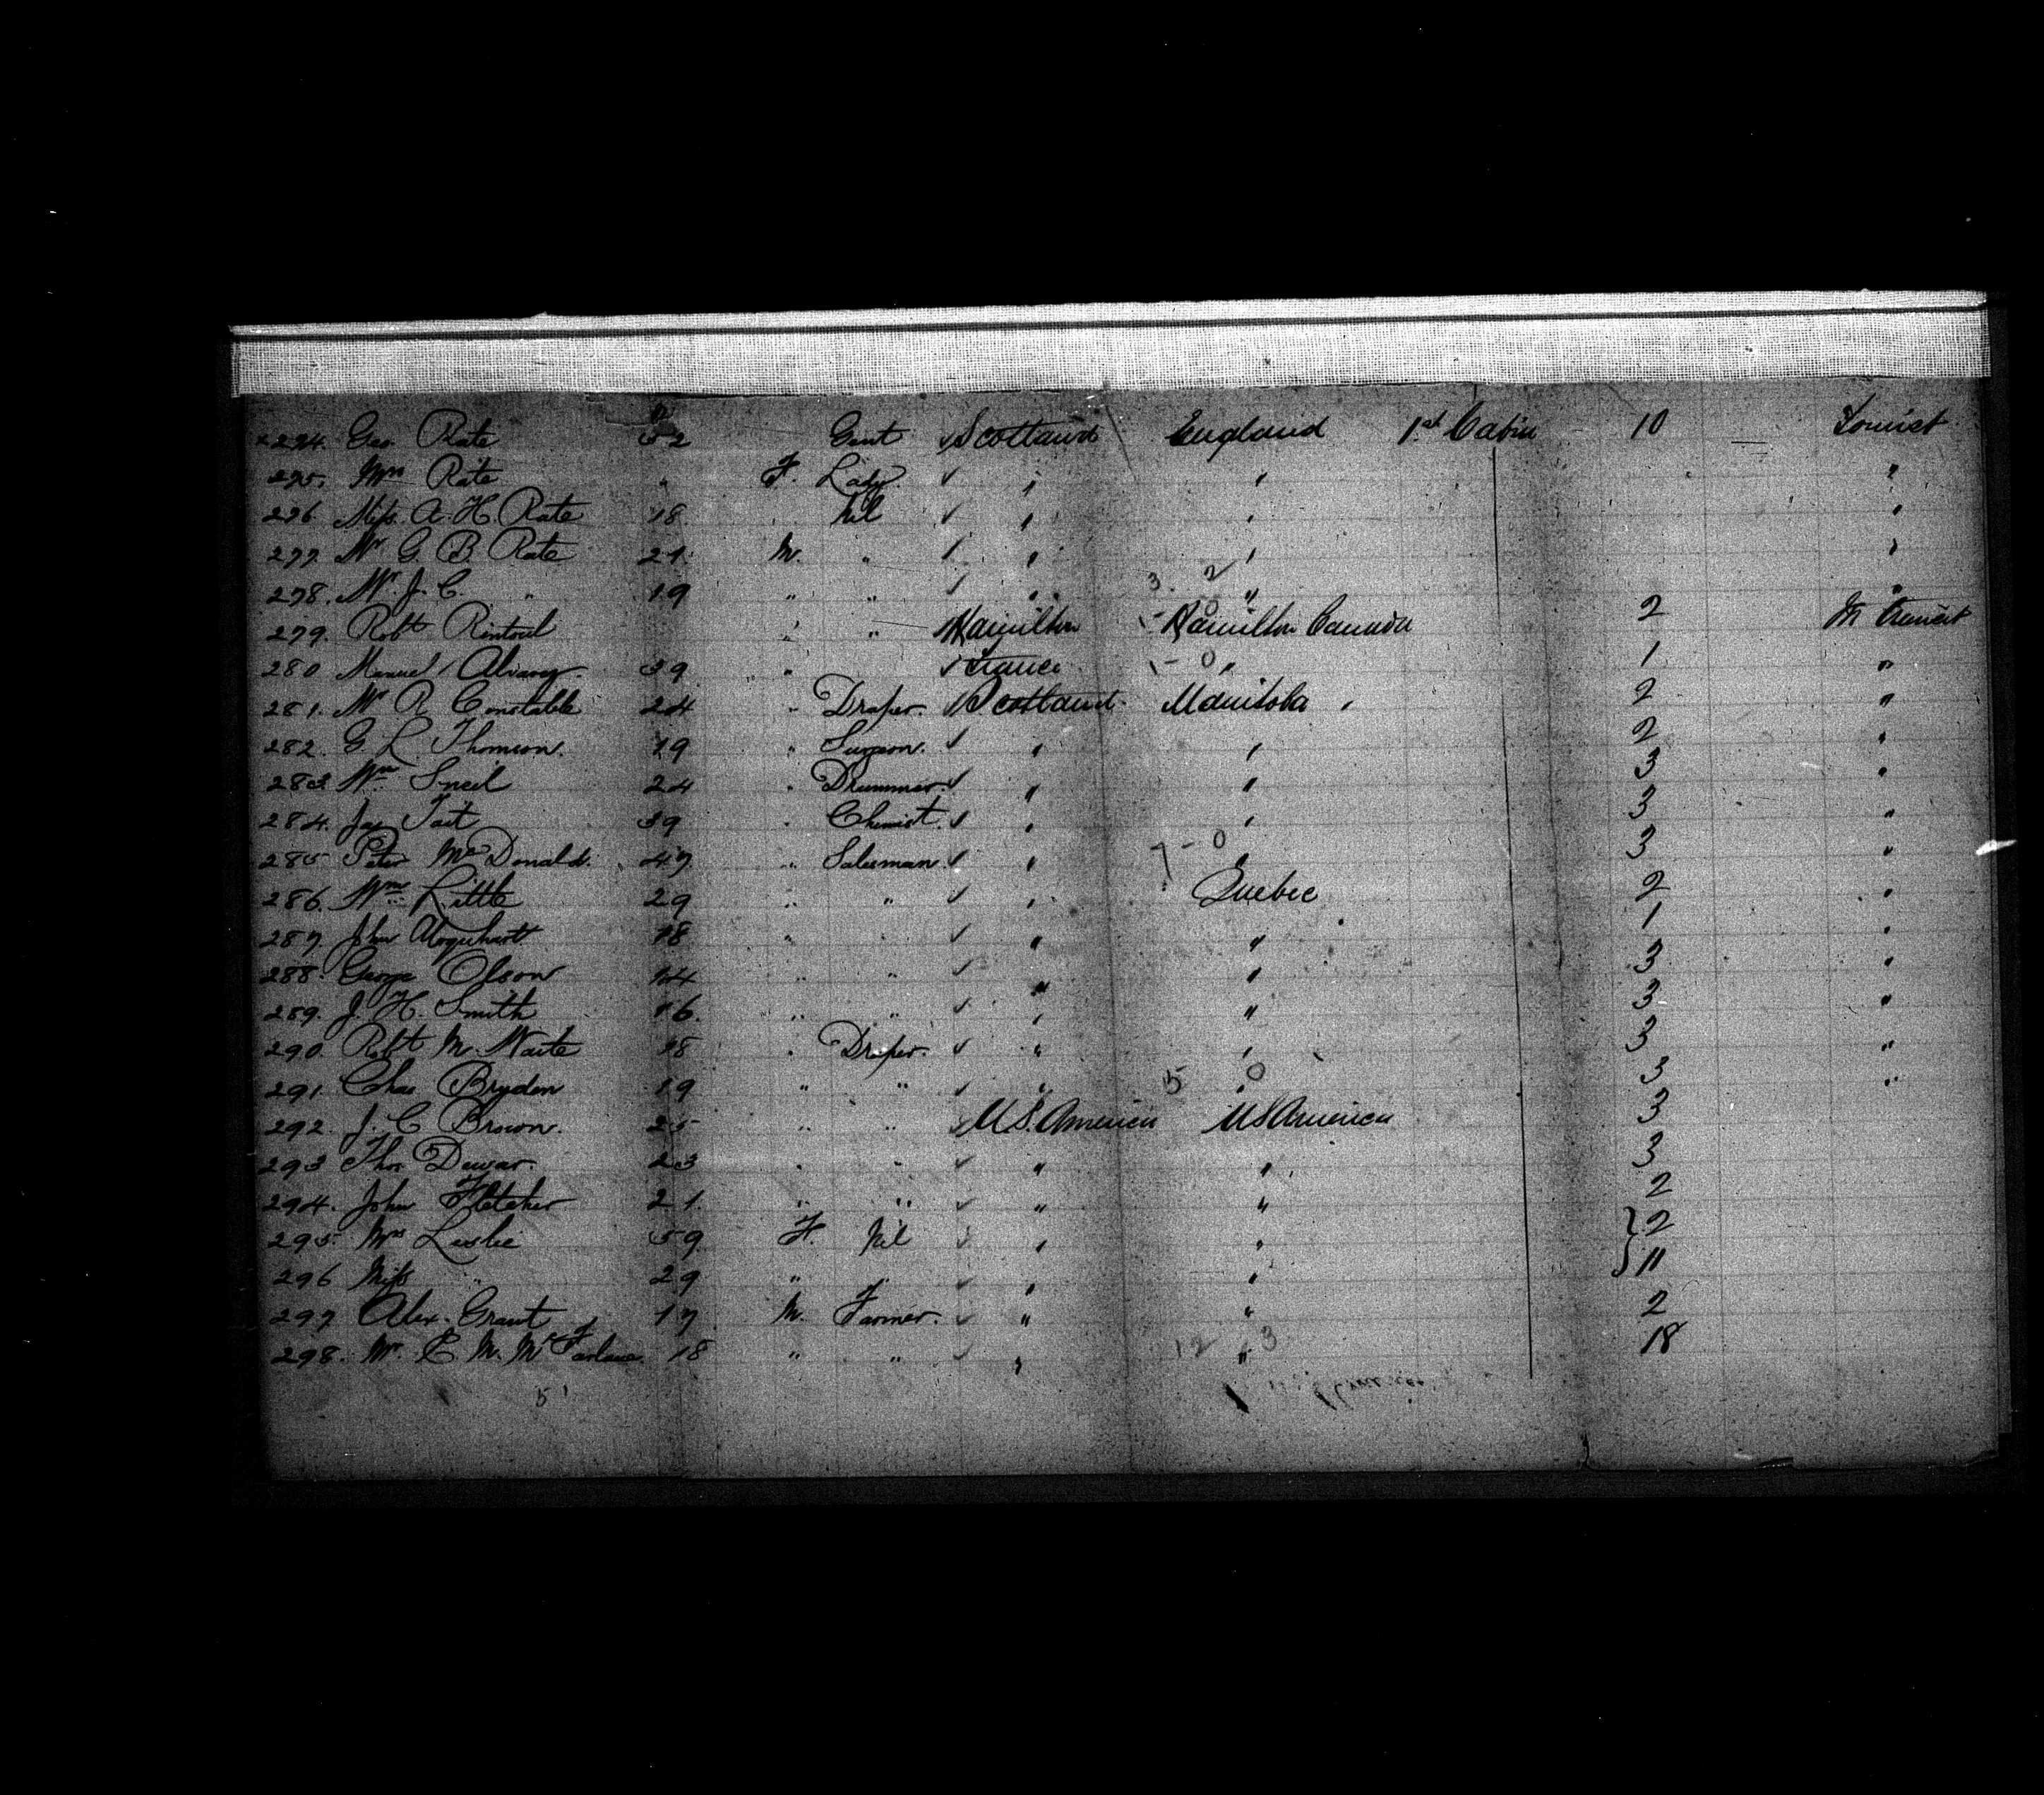 274. Geo Rate 52 Gent Scotland England 1st Cabin 10 Tourist
275. Mrs Rate " F. Lady " " "
276. Miss. A. H. Rate 18 " Nil " " "
277. Mr G. B Rate 21. M. " " " "
278. Mr J. C. " 19 " " " 3. 2 " "
279. Robt Rintoul " " Hamilton Hamilton Canada 2 In Transit
280 Manuel 39 " France 1-0 " 1 "
281. Mr R Constable 24 " Draper. Scotland Manitoba " 2 "
282. G. L Thomson. 19 " " " 2 "
283 Wm Sneil 24 " Drummer. " " 3 "
284. Jas Tait 39 " Chemist. " " 3 "
285 Peter McDonald. 47 " Salesman. " 7-0 " 3 "
286. Wm Little 29 " " " Quebec 2 "
287. John Urquhart 18 " " " " 1 "
288. George Olson 14 " " " " 3 "
289. J. H. Smith 16. " " " " 3 "
290. Robt M. Waite 18 " Draper. " " 3 "
291. Chas Brydon 19 " " " 5 0 " 3 "
292. J. C Brown. 25 " " U S. America U S America 3
293 Thos Dewar. 23 " " " " 3
294. John Fletcher 21. " " " " 2
295. Mrs Leslie 59 F. Nil " " 2
296 Miss " 29 " " " " 11
297 Alex. Grant 17 M. Farmer. " " 2
298. Mr. E. M. McFarlane. 18 " " " 12 " 3 18
51